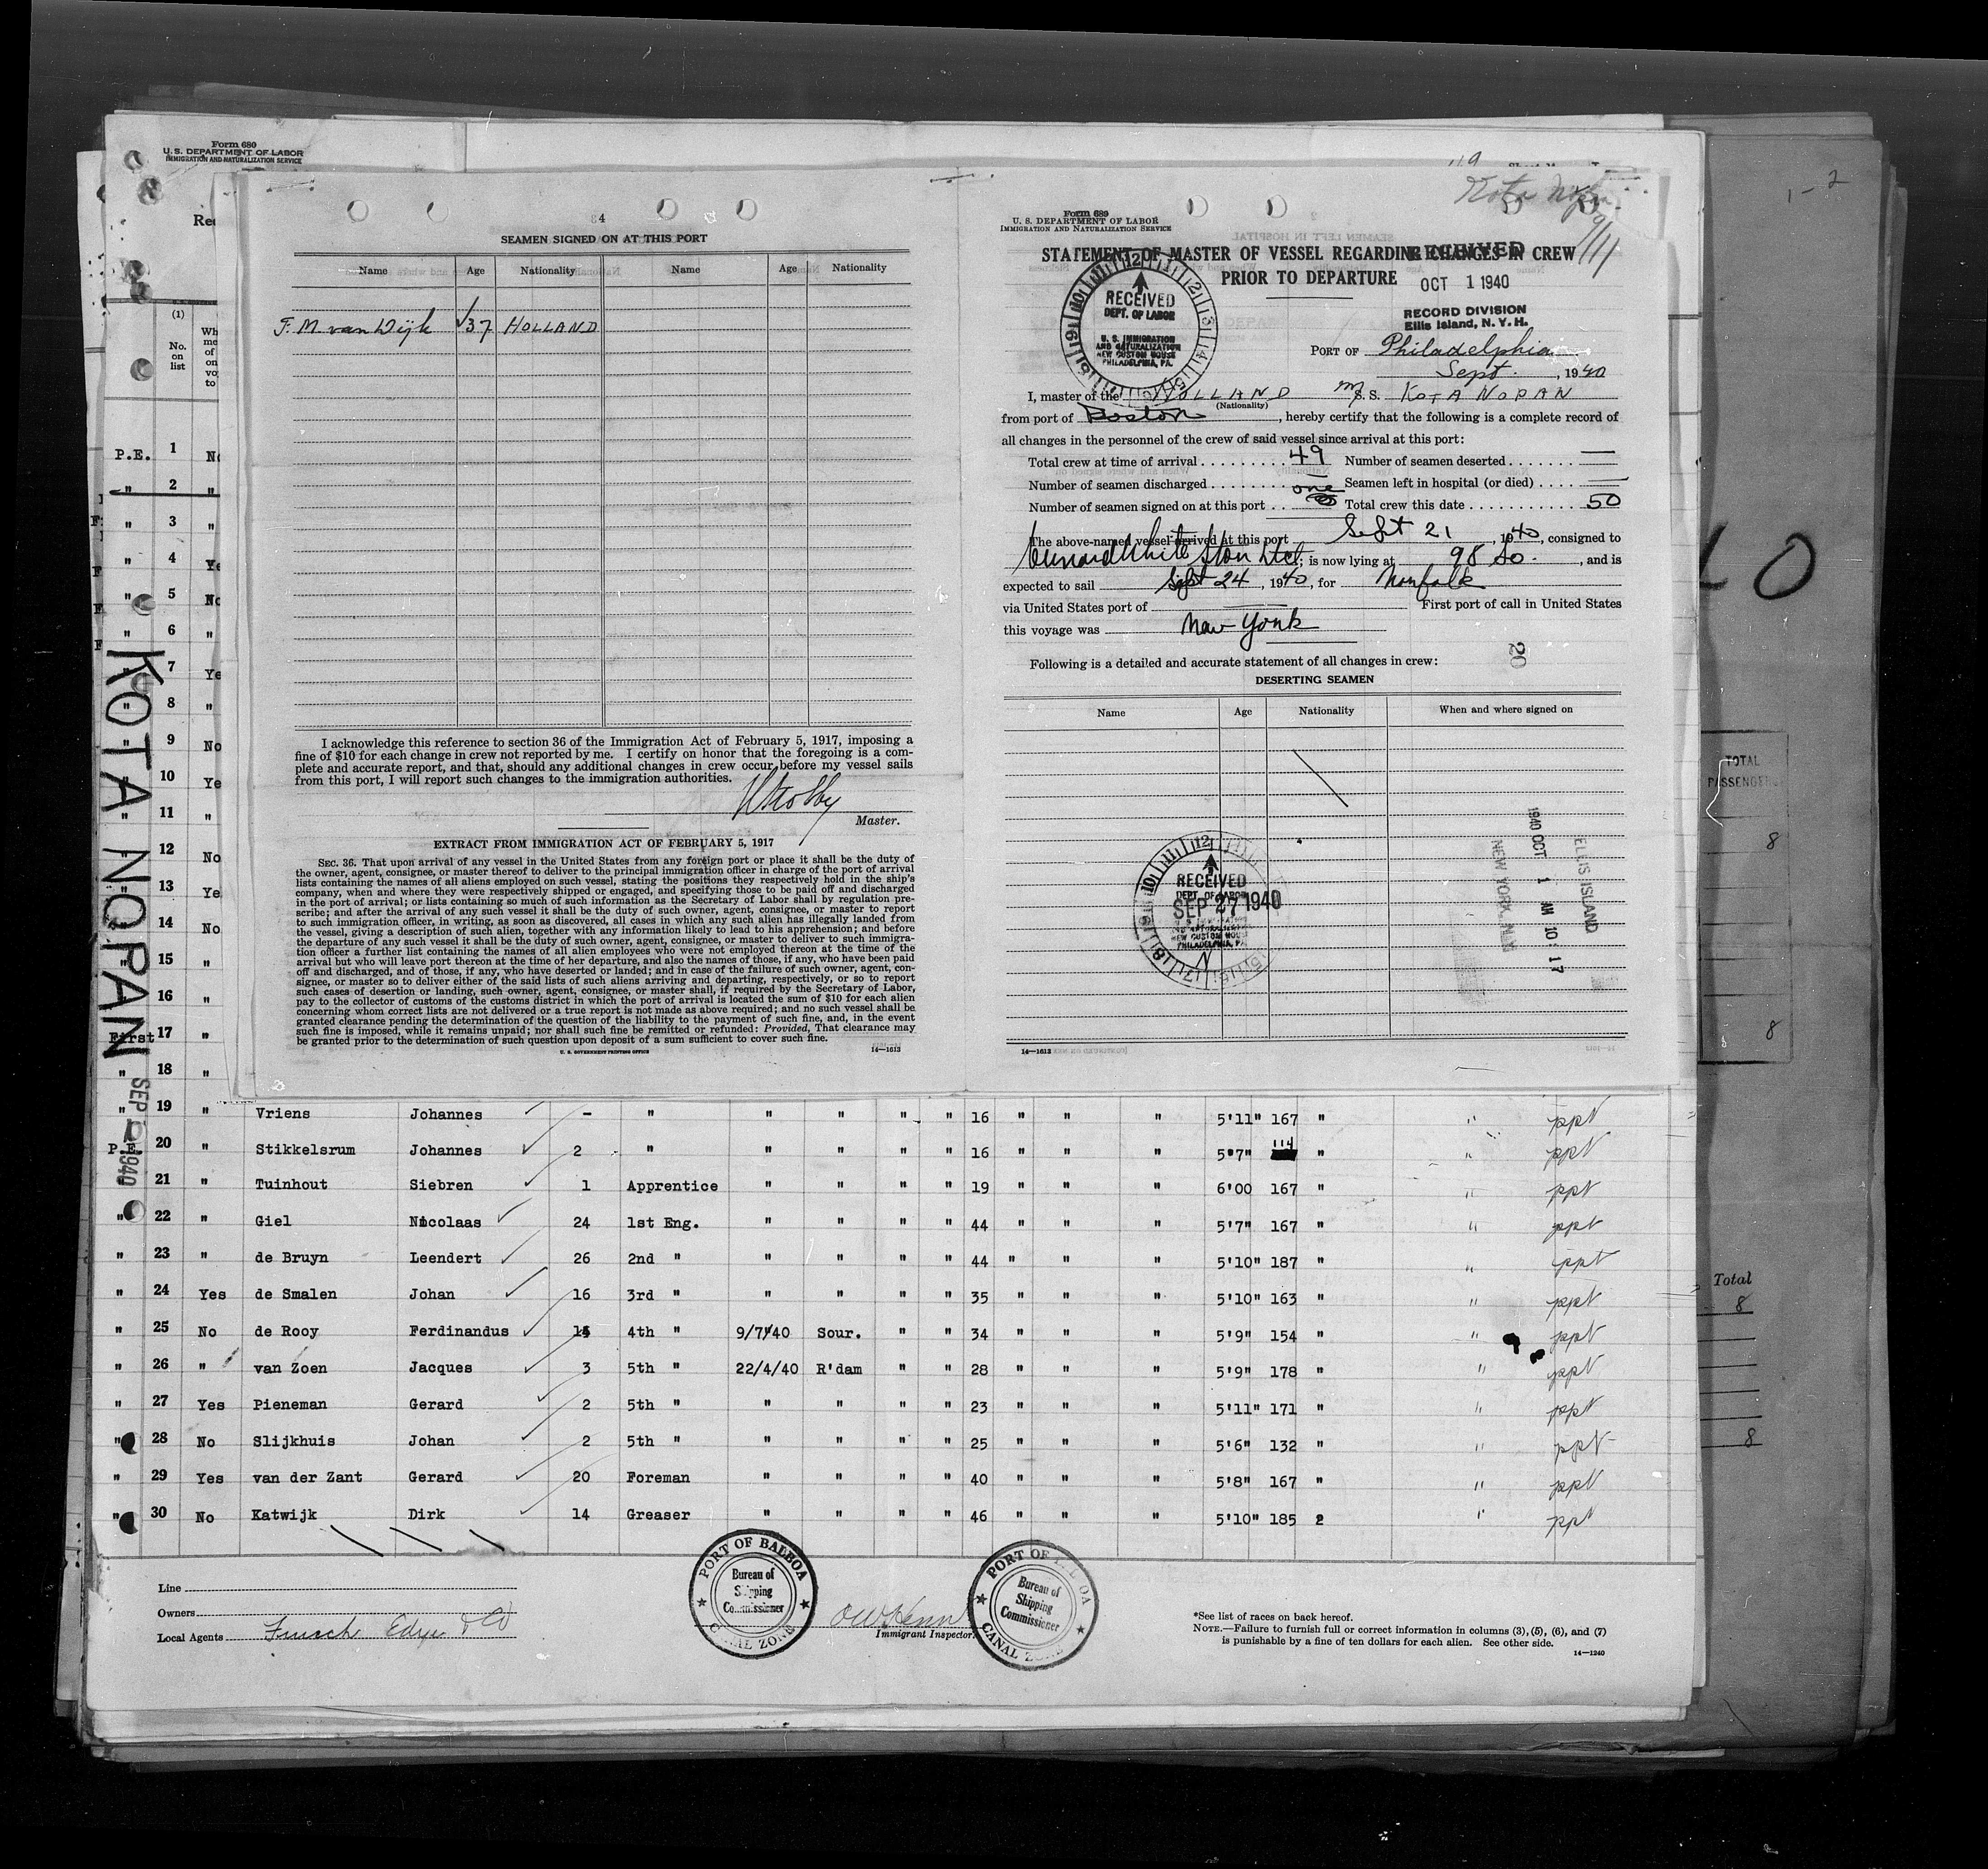 Form 680
U. S. DEPARTMENT OF LABOR
IMMIGRATION AND NATURALIZATION SERVICE
1-2
4
SEAMEN SIGNED ON AT THIS PORT
Name Age Nationality Name Age Nationality
F. M. van Wijk 37 HOLLAND
I acknowledge this reference to section 36 of the Immigration Act of February 5, 1917, imposing a
fine of $10 for each change in crew not reported by me. I certify on honor that the foregoing is a com-
plete and accurate report, and that, should any additional changes in crew occur before my vessel sails
from this port, I will report such changes to the immigration authorities.
Master.
EXTRACT FROM IMMIGRATION ACT OF FEBRUARY 5, 1917
SEC. 36. That upon arrival of any vessel in the United States from any foreign port or place it shall be the duty of
the owner, agent, consignee, or master thereof to deliver to the principal immigration officer in charge of the port of arrival
lists containing the names of all aliens employed on such vessel, stating the positions they respectively hold in the ship's
company, when and where they were respectively shipped or engaged, and specifying those to be paid off and discharged
in the port of arrival; or lists containing so much of such information as the Secretary of Labor shall by regulation pre-
scribe; and after the arrival of any such vessel it shall be the duty of such owner, agent, consignee, or master to report
to such immigration officer, in writing, as soon as discovered, all cases in which any such alien has illegally landed from
the vessel, giving a description of such alien, together with any information likely to lead to his apprehension; and before
the departure of any such vessel it shall be the duty of such owner, agent, consignee, or master to deliver to such immigra-
tion officer a further list containing the names of all alien employees who were not employed thereon at the time of the
arrival but who will leave port thereon at the time of her departure, and also the names of those, if any, who have been paid
off and discharged, and of those, if any, who have deserted or landed; and in case of the failure of such owner, agent, con-
signee, or master so to deliver either of the said lists of such aliens arriving and departing, respectively, or so to report
such cases of desertion or landing, such owner, agent, consignee, or master shall, if required by the Secretary of Labor,
pay to the collector of customs of the customs district in which the port of arrival is located the sum of $10 for each alien
concerning whom correct lists are not delivered or a true report is not made as above required; and no such vessel shall be
granted clearance pending the determination of the question of the liability to the payment of such fine, and, in the event
such fine is imposed, while it remains unpaid; nor shall such fine be remitted or refunded: Provided, That clearance may
be granted prior to the determination of such question upon deposit of a sum sufficient to cover such fine.
U. S. GOVERNMENT PRINTING OFFICE 14—1613
Form 689
U. S. DEPARTMENT OF LABOR
IMMIGRATION AND NATURALIZATION SERVICE
Kota Nopan
9/11
STATEMENT OF MASTER OF VESSEL REGARDING CHANGES IN CREW
PRIOR TO DEPARTURE
RECEIVED
OCT 1 1940
RECORD DIVISION
Ellis Island, N. Y. H.
RECEIVED
DEPT. OF LABOR
U. S. IMMIGRATION
AND NATURALIZATION
NEW CUSTOM HOUSE
PHILADELPHIA, PA.
PORT OF Philadelphia
Sept. , 1940
I, master of the HOLLAND M S. S. KOTA NOPAN
(Nationality)
from port of Boston , hereby certify that the following is a complete record of
all changes in the personnel of the crew of said vessel since arrival at this port:
Total crew at time of arrival 49 Number of seamen deserted —
Number of seamen discharged — Seamen left in hospital (or died) —
Number of seamen signed on at this port one Total crew this date 50
The above-named vessel arrived at this port Sept 21 , 1940, consigned to
Cunard White Star Ltd.; is now lying at 98 So. , and is
expected to sail Sept 24 , 1940, for Norfolk
via United States port of — First port of call in United States
this voyage was New York
20
Following is a detailed and accurate statement of all changes in crew:
DESERTING SEAMEN
Name Age Nationality When and where signed on
RECEIVED
DEPT. OF LABOR
SEP 27 1940
NEW CUSTOM HOUSE
PHILADELPHIA, PA.
ELLIS ISLAND
1940 OCT 1 AM 10:17
NEW YORK, N.Y.
14—1613
KOTA NOPAN
SEP 1940
(1)
No.
on
list
P.E. 1 No
" 2 "
" 3 "
" 4 Ye
" 5 No
" 6 "
7 Ye
" 8 "
" 9 No
" 10 Ye
" 11 "
" 12 No
" 13 Ye
" 14 No
" 15 "
" 16 "
First 17 "
" 18 "
" 19 " Vriens Johannes - " " " " " 16 " " " 5'11" 167 " " ppt
P.E. 20 " Stikkelsrum Johannes 2 " " " " " 16 " " " 5'7" 114 " " ppt
21 " Tuinhout Siebren 1 Apprentice " " " " 19 " " " 6'00 167 " " ppt
" 22 " Giel Nicolaas 24 1st Eng. " " " " 44 " " " 5'7" 167 " " ppt
" 23 " de Bruyn Leendert 26 2nd " " " " " 44 " " " 5'10" 187 " " ppt
" 24 Yes de Smalen Johan 16 3rd " " " " " 35 " " " 5'10" 163 " " ppt
" 25 No de Rooy Ferdinandus 14 4th " 9/7/40 Sour. " " 34 " " " 5'9" 154 " " ppt
" 26 " van Zoen Jacques 3 5th " 22/4/40 R'dam " " 28 " " " 5'9" 178 " " ppt
" 27 Yes Pieneman Gerard 2 5th " " " " " 23 " " " 5'11" 171 " " ppt
" 28 No Slijkhuis Johan 2 5th " " " " " 25 " " " 5'6" 132 " " ppt
" 29 Yes van der Zant Gerard 20 Foreman " " " " 40 " " " 5'8" 167 " " ppt
" 30 No Katwijk Dirk 14 Greaser " " " " 46 " " " 5'10" 185 2 " ppt
Line
Owners
Local Agents
PORT OF BALBOA
Bureau of
Shipping
Commissioner
CANAL ZONE
Immigrant Inspector.
PORT OF BALBOA
Bureau of
Shipping
Commissioner
CANAL ZONE
*See list of races on back hereof.
NOTE.—Failure to furnish full or correct information in columns (3), (5), (6), and (7)
is punishable by a fine of ten dollars for each alien. See other side.
14—1240
TOTAL
PASSENGERS
8
8
Total
8
8